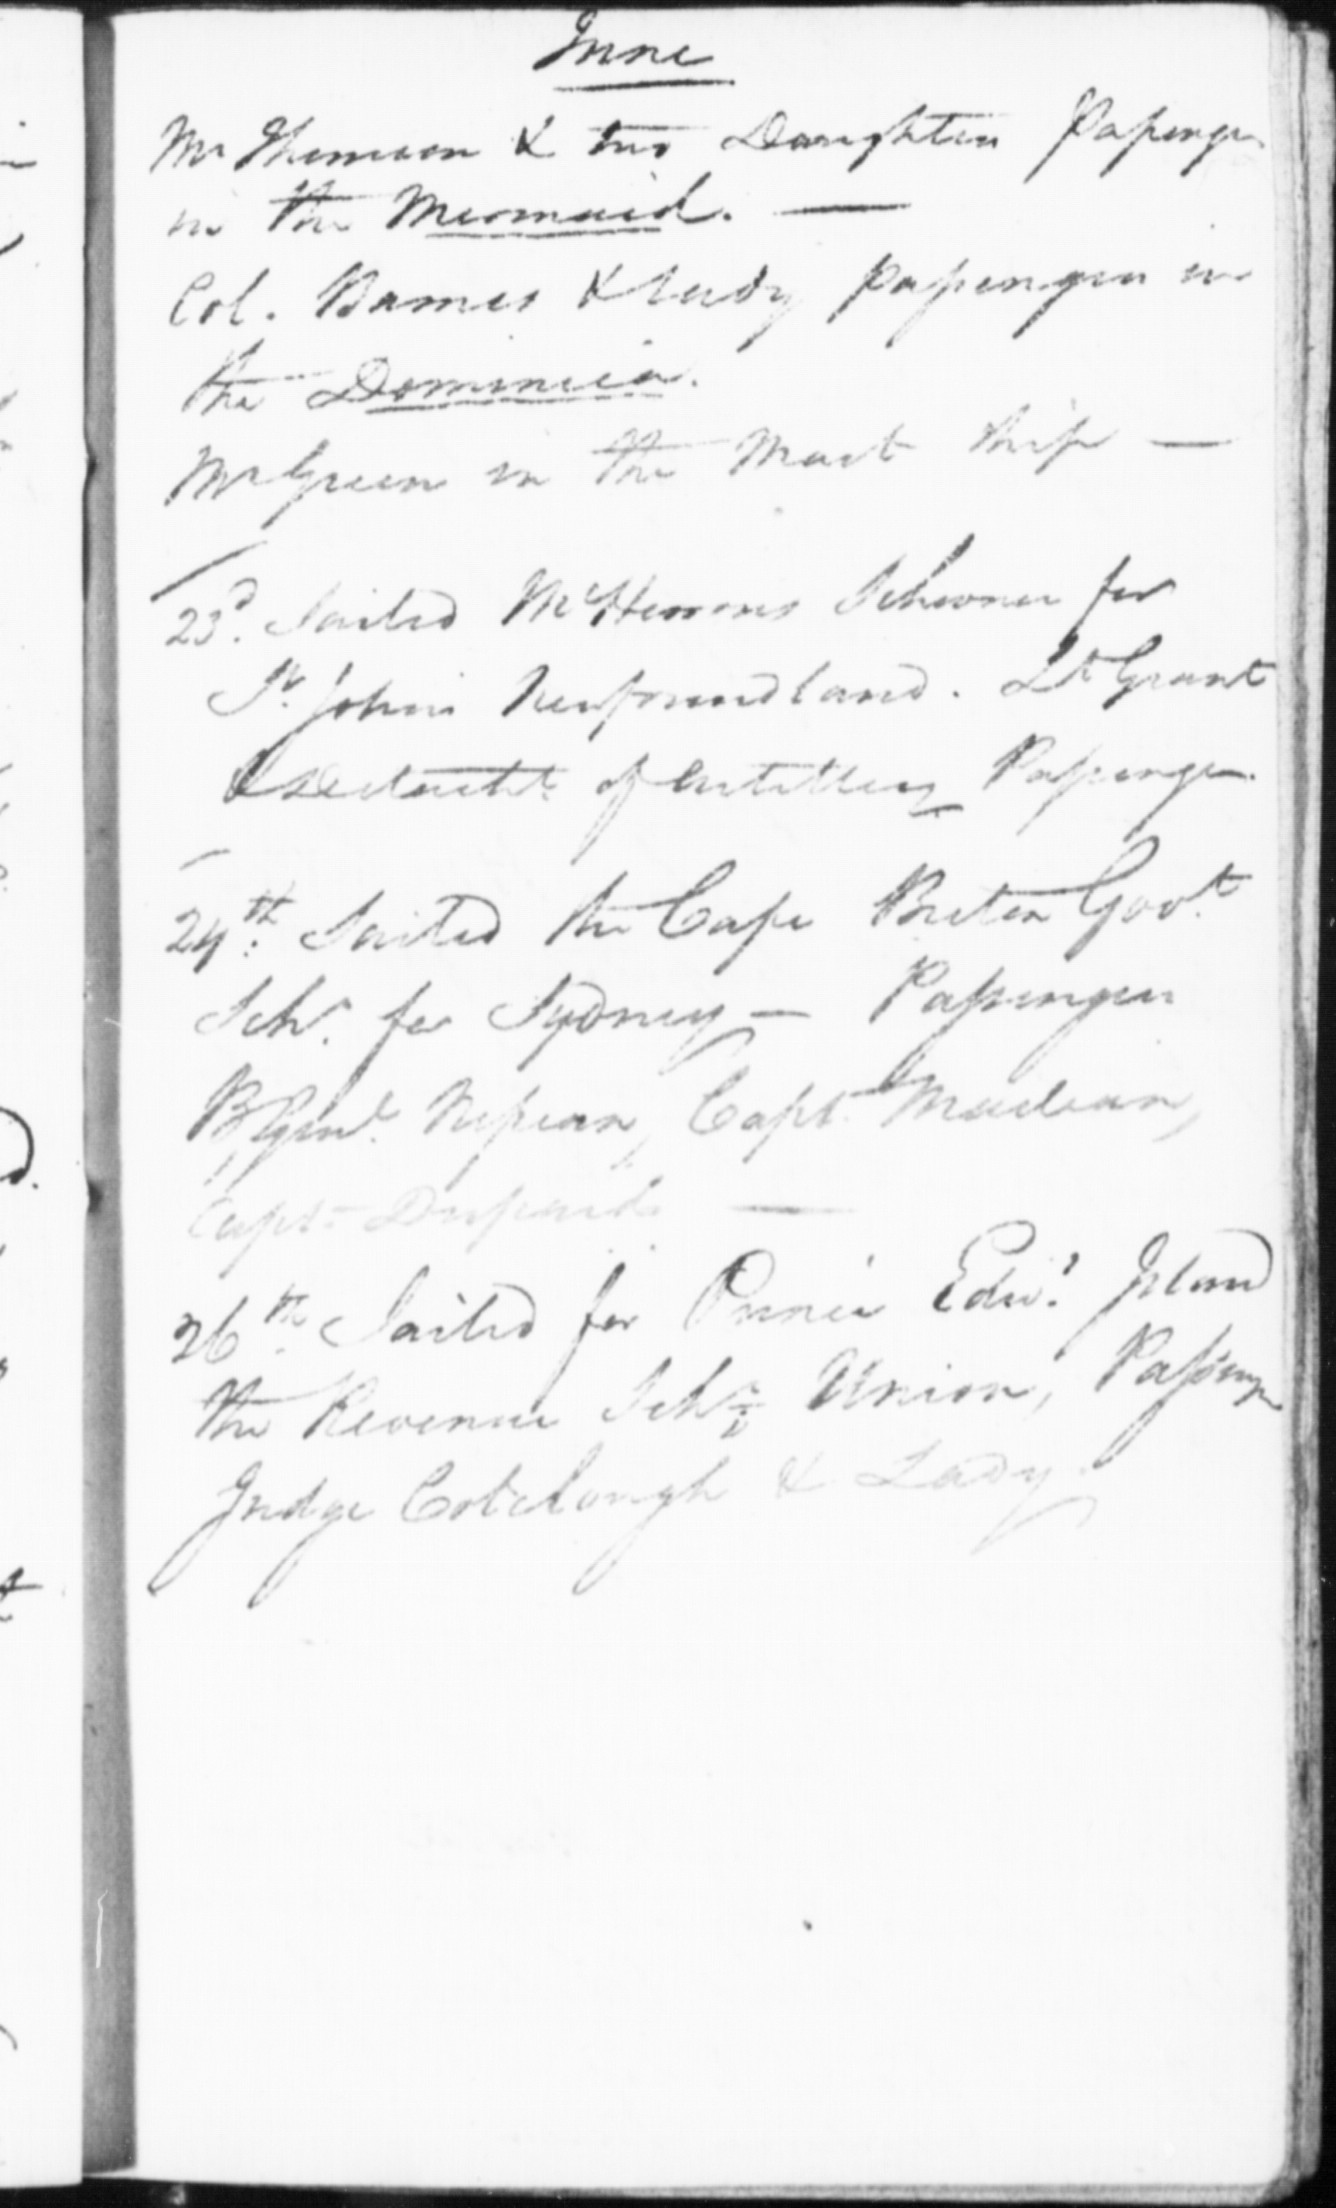 June
Mr Thomson & two Daughters Passenger
in the Mermaid. —
Col. Barnes & Lady passengers in
the Dominica.
Mr Green in the Mast Ship —
23d. Sailed McHerrons Schooner for
St. Johns Newfoundland. Lt Grant
& Detacht of Artillery Passenger.
24th: Sailed the Cape Breton Govt
Schr. for Sydney — Passengers
B Genl. Nepean, Capt. Maclean,
Capt.
26th Sailed for Prince Edwd. Island
the Revenue Schr. Union, Passengr
Judge Colclough & Lady.